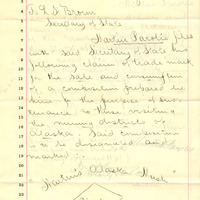 Secretary of State
Martin Jacobs files
with said Secretary of State his
following claim of trade mark
for the sale and consumption
of a composition prepared by
him for the purpose of sus-
tenance to those visiting
the mining districts of
Alaska. Said composition
is to be designated and
marked:
"Martin's Alaska Mush"